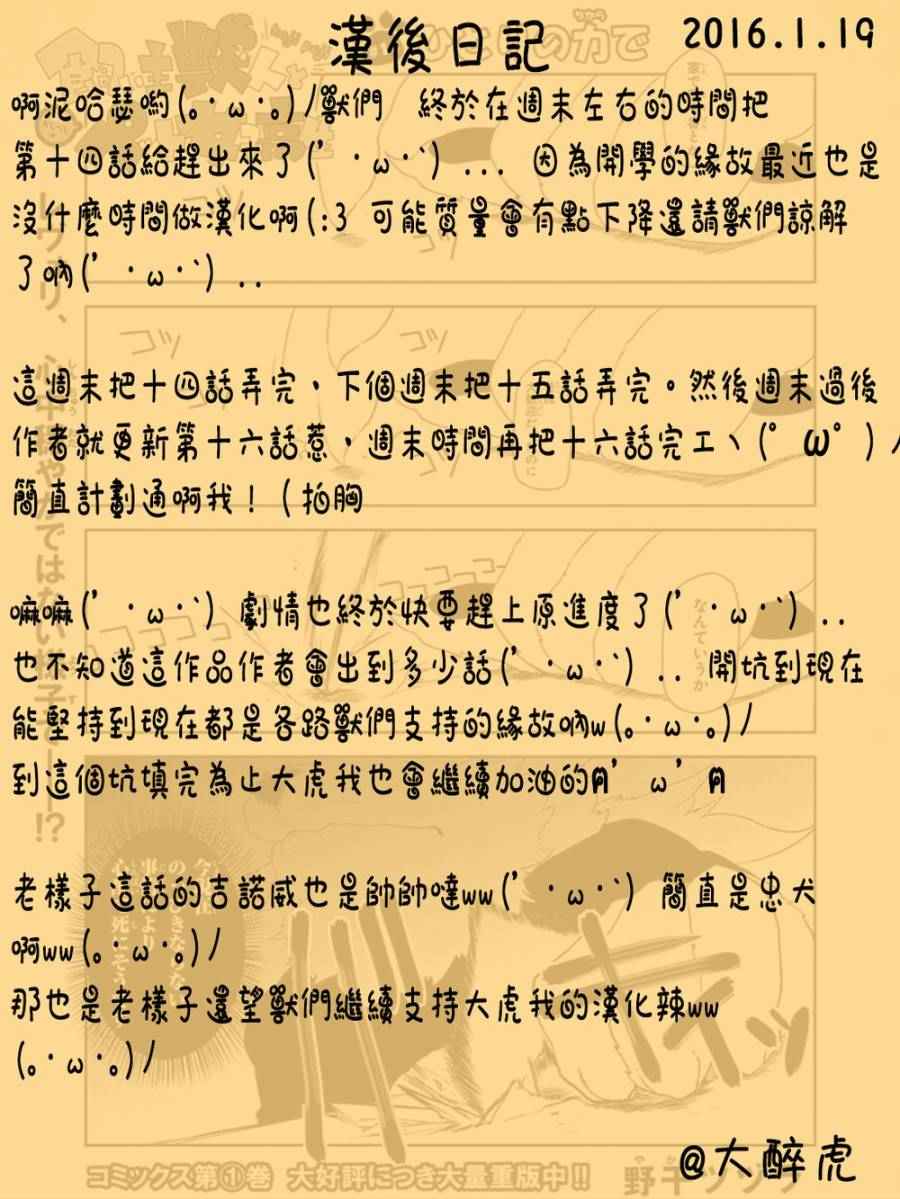 漢後日記
2016.1.19
啊泥哈瑟喲(｡･ω･｡)ﾉ獸們　終於在週末左右的時間把
第十四話給趕出來了(′・ω・`) ... 因為開學的緣故最近也是
沒什麼時間做漢化啊(:3 可能質量會有點下降還請獸們諒解
了吶(′・ω・`) ..
這週末把十四話弄完，下個週末把十五話弄完。然後週末過後
作者就更新第十六話惹，週末時間再把十六話完工ヽ(°ω°)ﾉ
簡直計劃通啊我！（拍胸
嘛嘛(′・ω・`) 劇情也終於快要趕上原進度了(′・ω・`) ..
也不知道這作品作者會出到多少話(′・ω・`) .. 開坑到現在
能堅持到現在都是各路獸們支持的緣故吶w(｡･ω･｡)ﾉ
到這個坑填完為止大虎我也會繼續加油的ฅ’ω’ฅ
老樣子這話的吉諾威也是帥帥噠ww(′・ω・`) 簡直是忠犬
啊ww(｡･ω･｡)ﾉ
那也是老樣子還望獸們繼續支持大虎我的漢化辣ww
(｡･ω･｡)ﾉ
@大醉虎
コミックス第①巻 大好評につき大量重版中!!